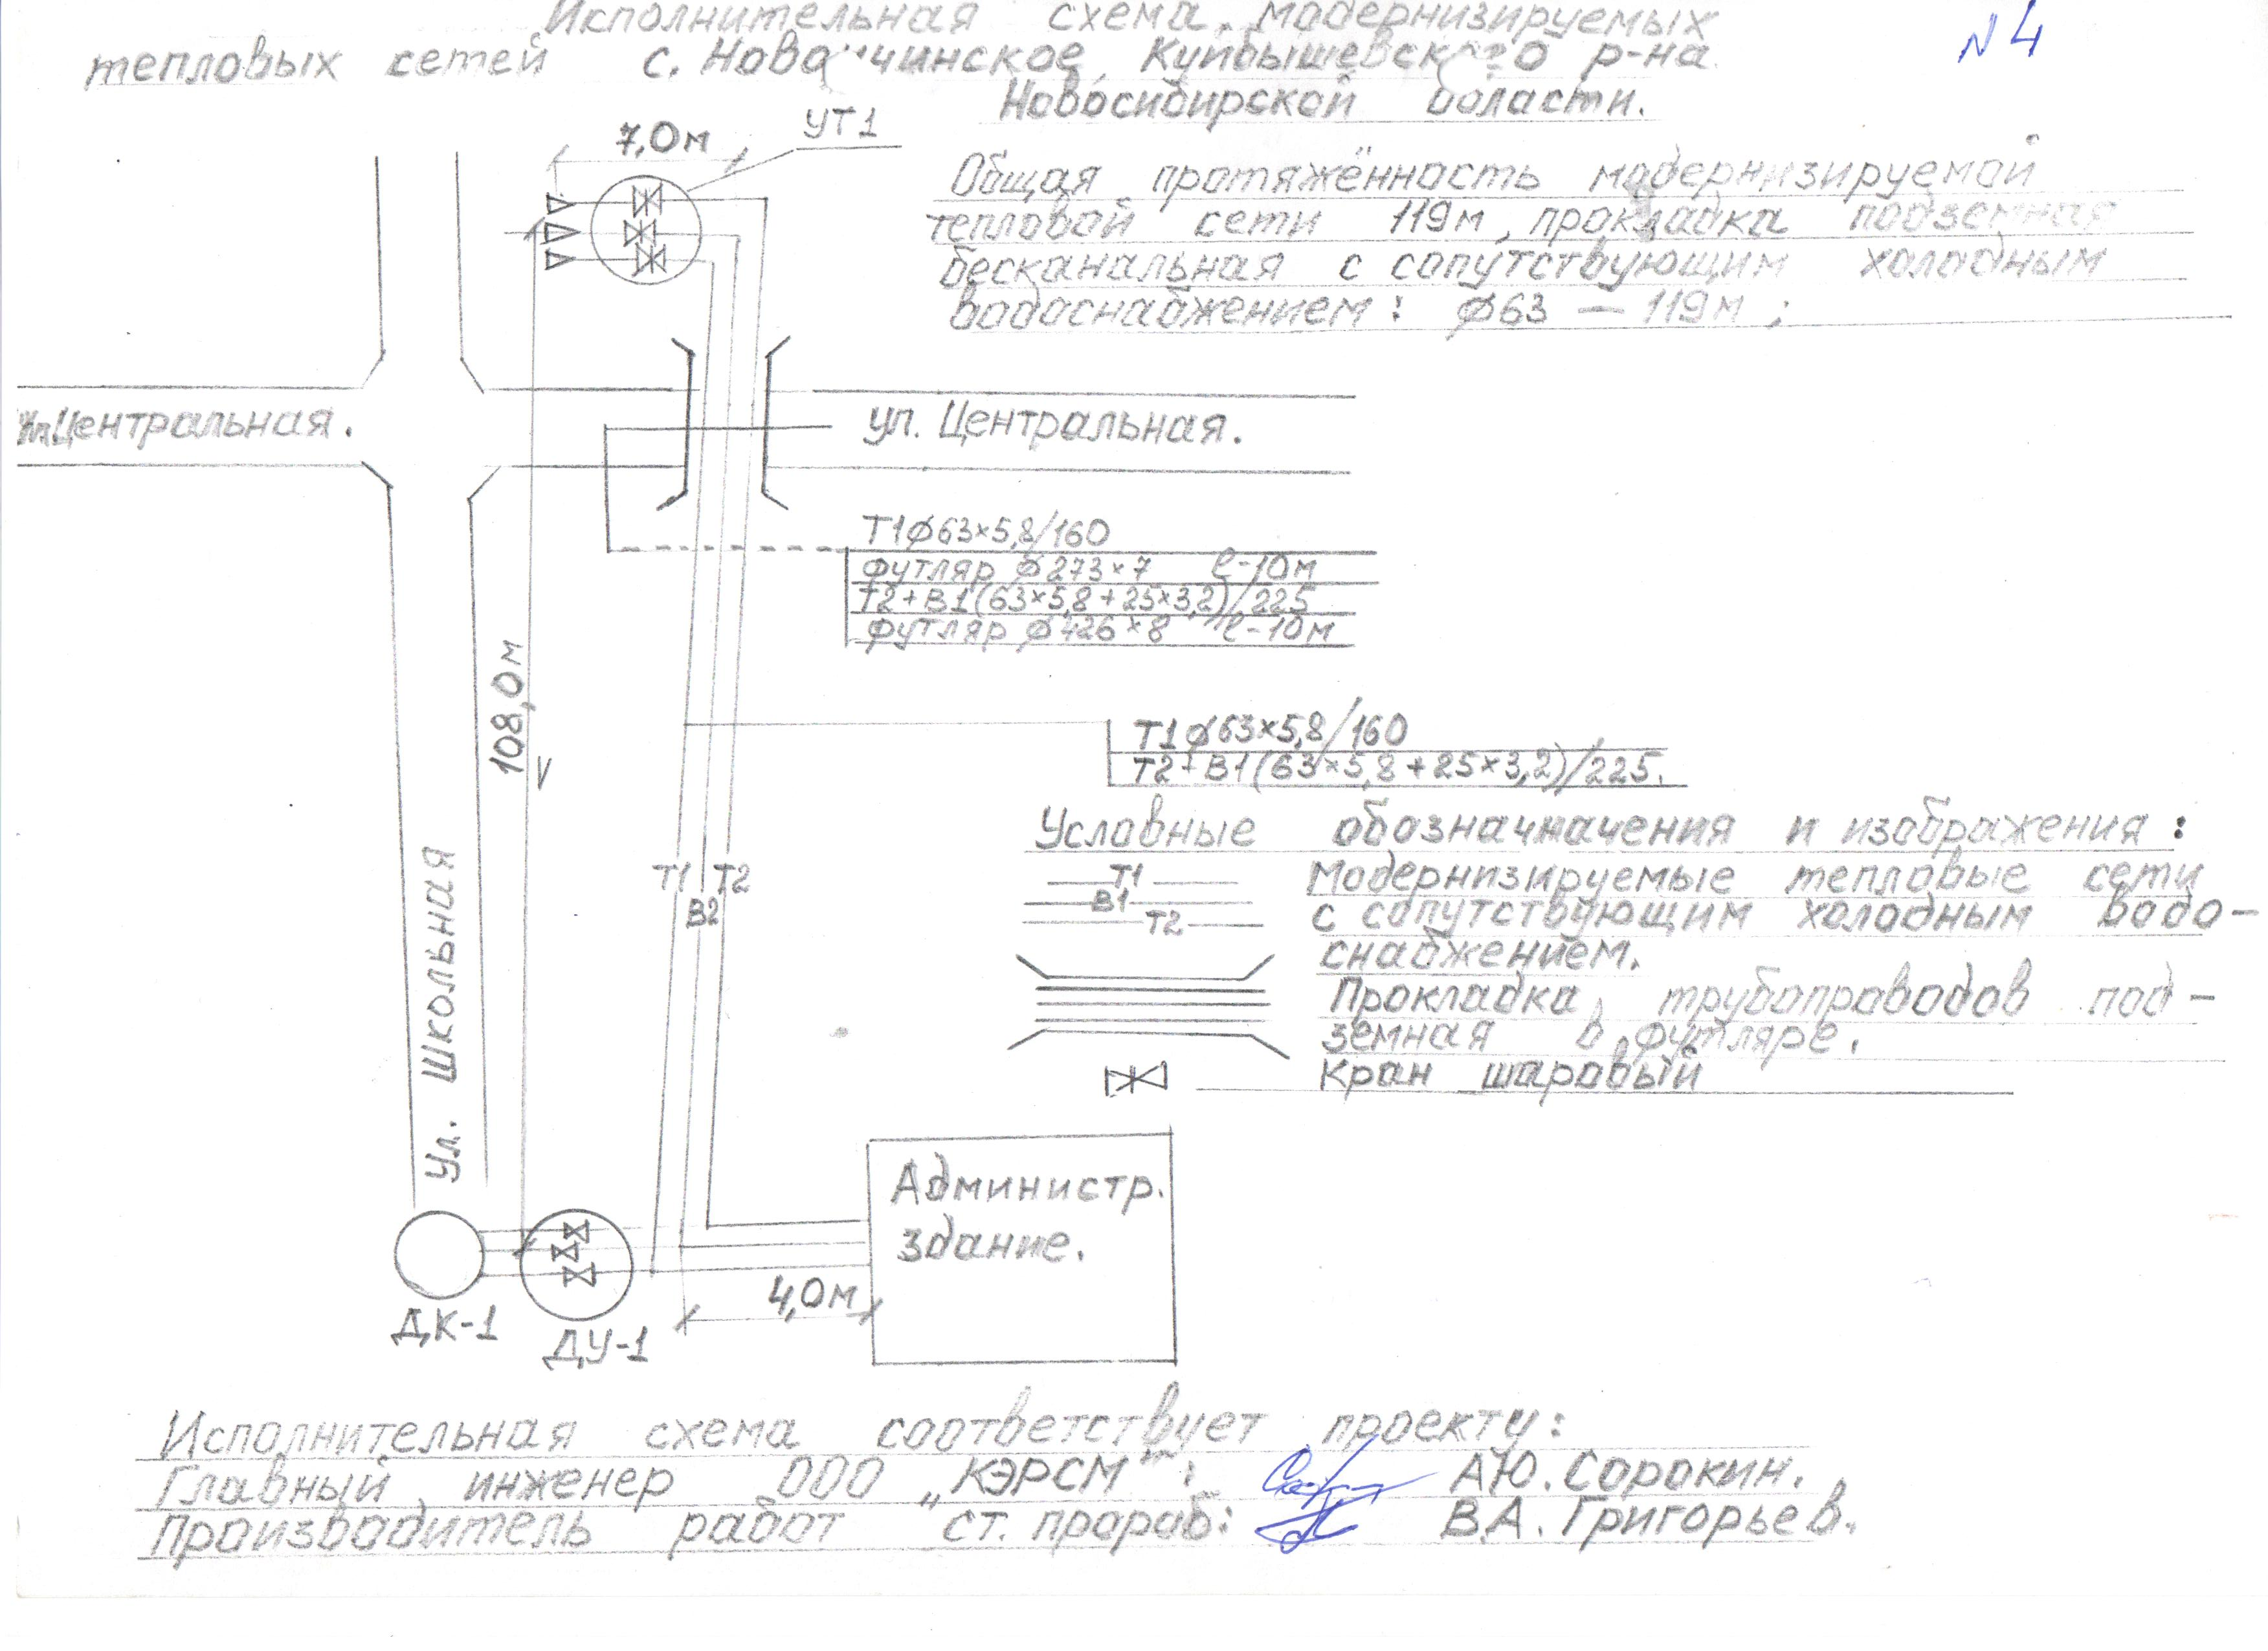 Исполнительная схема модернизируемых
N4
тепловых сетей с. Ново чинское, Куйбышевского р-на
Новосибирской области.
7,0м
УТ1
Общая протяжённость модернизируемой
тепловой сети 119м, прокладка подземная
бесканальная с сопутствующим холодным
водоснабжением: ϕ63 — 119м;
ул. Центральная.
ул. Центральная.
Т1ϕ63×5,8/160
футляр ϕ273×7 ℓ-10м
Т2+В1(63×5,8+25×3,2)/225
футляр ϕ426×8 ℓ-10м
108,0м
Т1ϕ63×5,8/160
Т2+В1(63×5,8+25×3,2)/225.
Условные обозначначения и изображения:
Т1 Т2
В2
Т1
В1
Т2
Модернизируемые тепловые сети
с сопутствующим холодным водо-
снабжением.
Прокладка трубопроводов под-
земная в футляре.
Кран шаровый
Ул. Школьная
Администр.
здание.
4,0м
ДК-1
ДУ-1
Исполнительная схема соответствует проекту:
Главный инженер ООО „КЭРСМ": А.Ю. Сорокин.
Производитель работ ст. прораб: В.А. Григорьев.